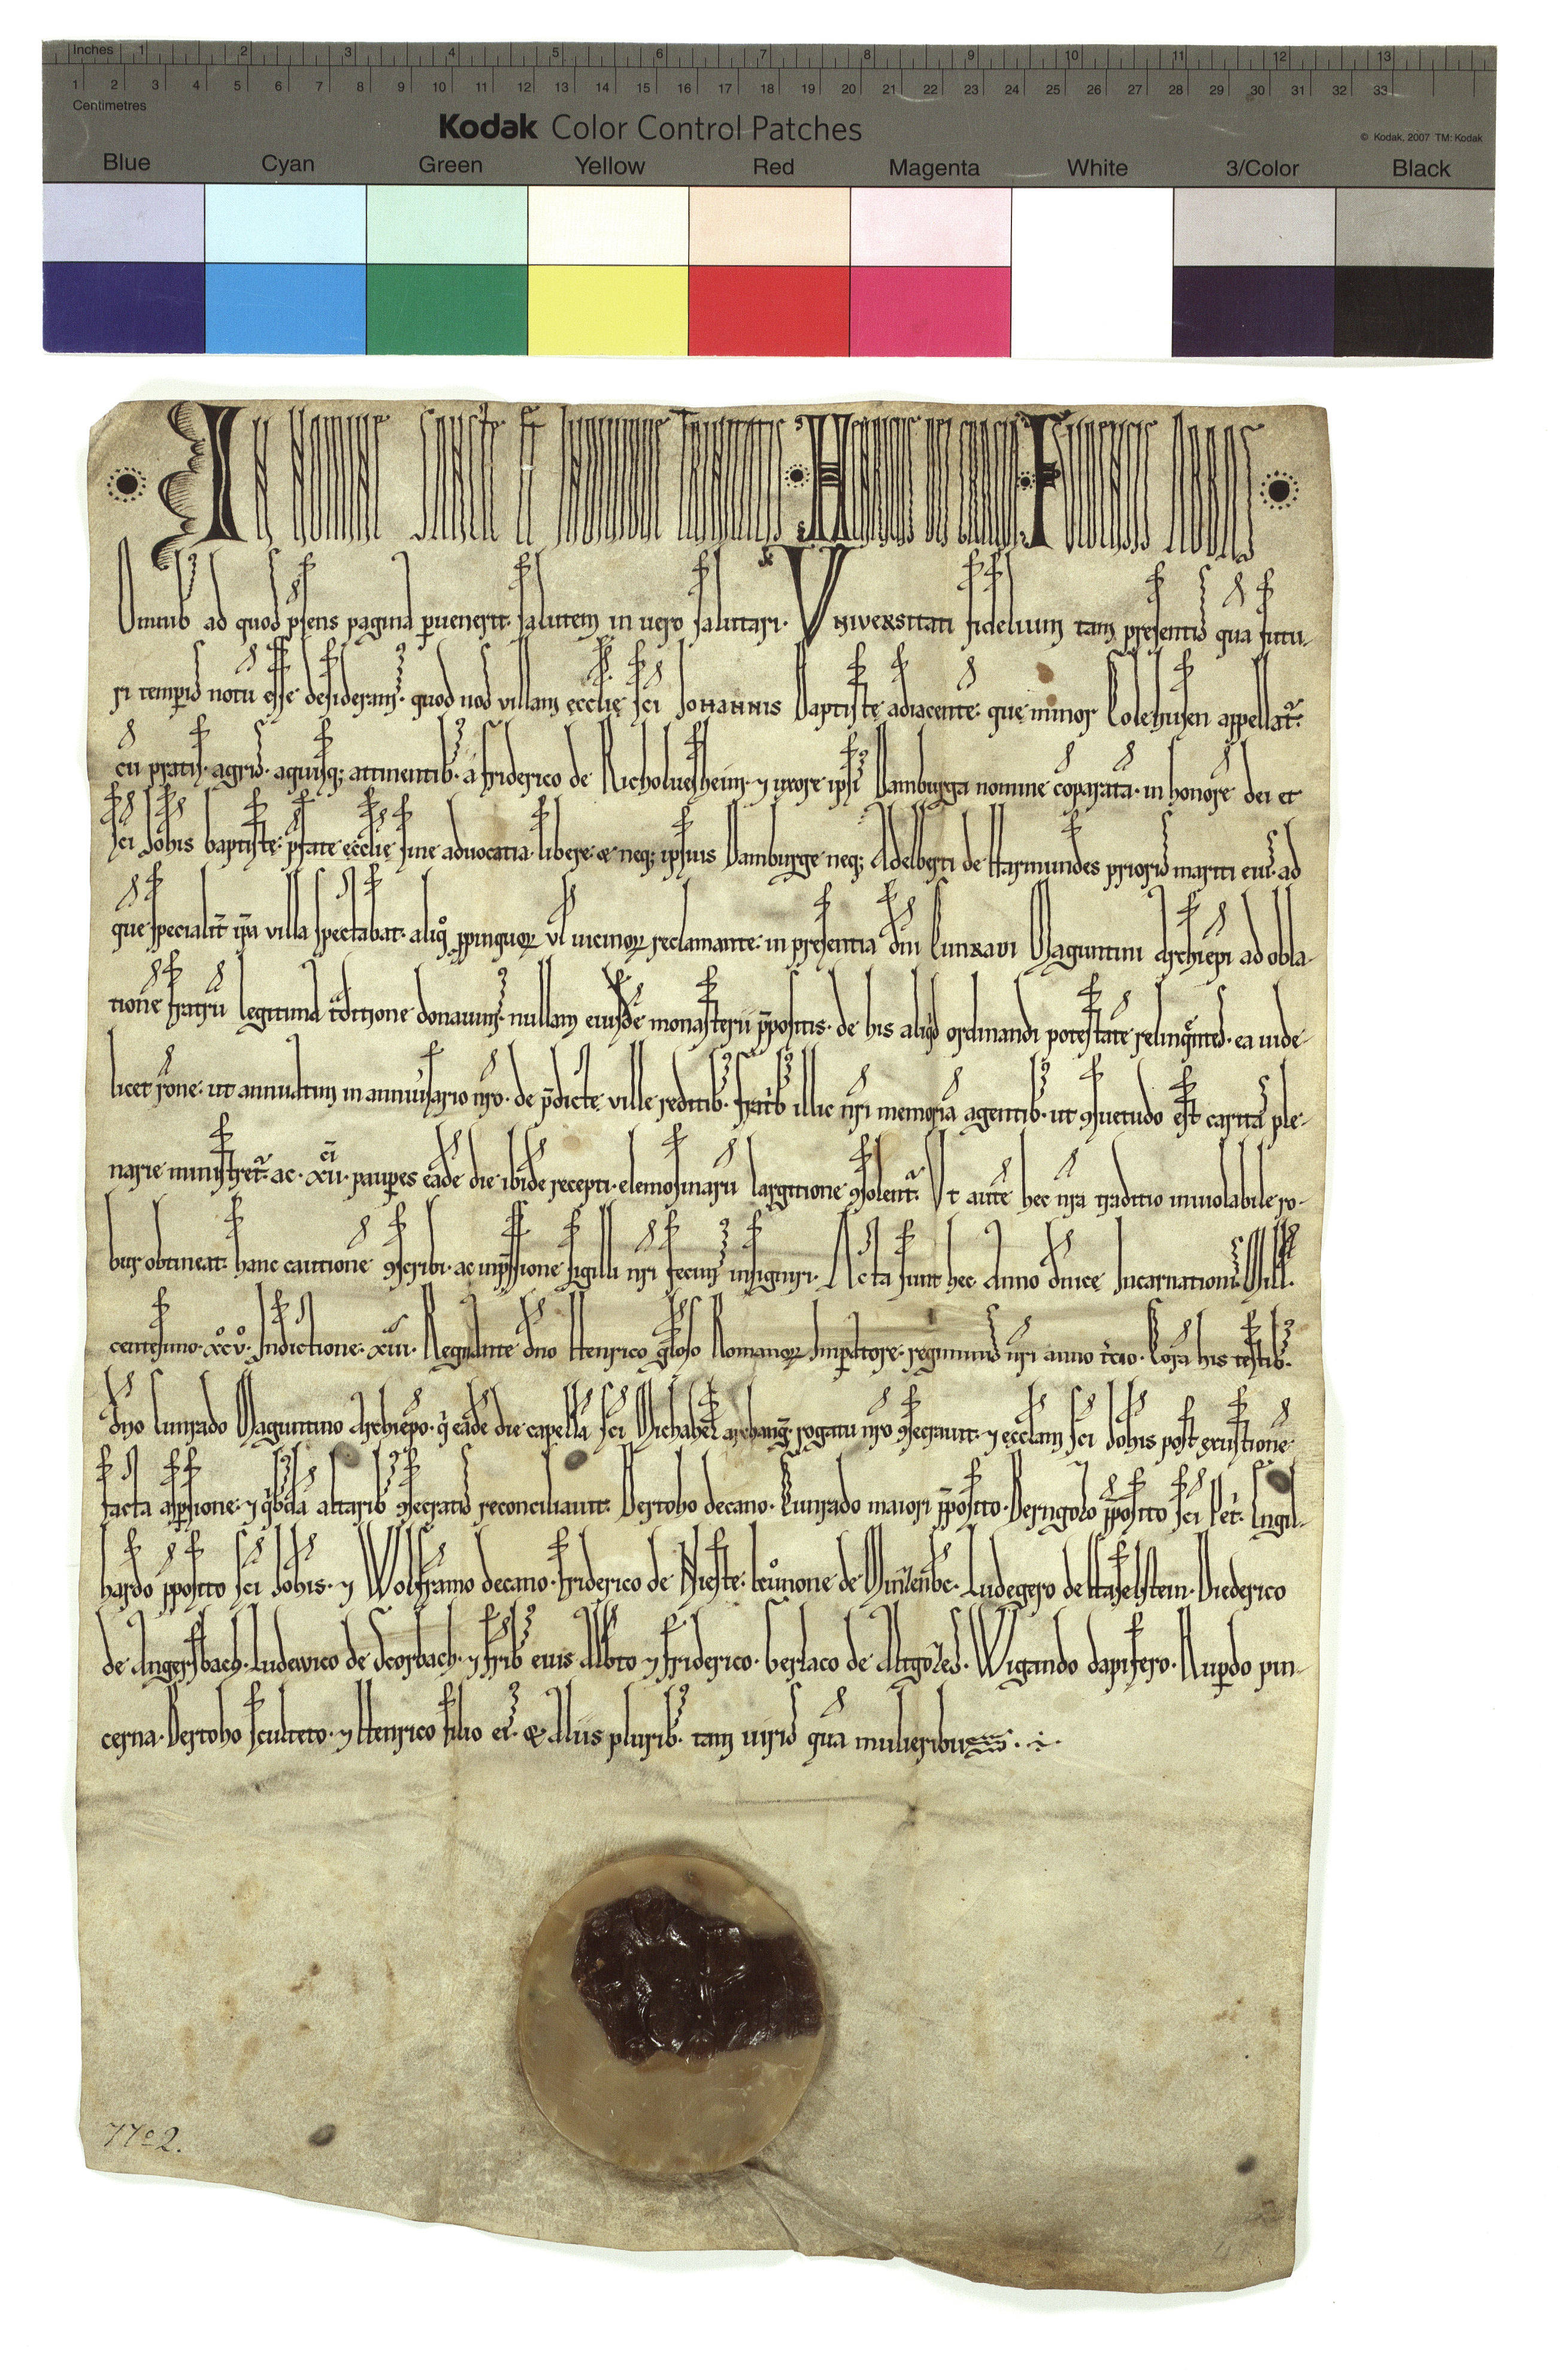 Inches 1 2 3 4 5 6 7 8 9 10 11 12 13
1 2 3 4 5 6 7 8 9 10 11 12 13 14 15 16 17 18 19 20 21 22 23 24 25 26 27 28 29 30 31 32 33
Centimetres
Kodak Color Control Patches
© Kodak, 2007 TM: Kodak
Blue Cyan Green Yellow Red Magenta White 3/Color Black
IN NOMINE SANCTE ET INDIVIDUE TRINITATIS HEINRICUS DEI GRATIA FULDENSIS ABBAS
Omnib ad quod psens pagina puenerit. salutem in uero salutari. Vniversitati fidelium tam presentis qua futu-
ri temporis notu esse desideram. quod nos villam ecclie sci Johannis Baptiste adiacente. que minor Kolehusen appellat.
cu pratis. agris. aquisq; attinentib. a friderico de Richoluesheim. 7 uxore ipsi Damburga nomine coparata. in honore dei et
sci Johis baptiste. pfate ecclie sine aduocatia libere. & neq; ipsius Damburge neq; Adelberti de Harmundes prioris mariti eius. ad
que specialit ipa villa spectabat. aliq ppinquor ul uicinor reclamante. in presentia dni Cunradi Maguntini Archiepi ad obla-
tione fratru legitima tditione donauim. nullam eiusde monasterii ppositis. de his aliqd ordinandi potestate relinqntes. ea uide-
licet rone. ut annuatim in anniusario nro. de pdicte ville reditib. fratrib illic nri memoria agentib. ut gsuetudo est carita ple-
narie ministret. ac. xii. paupes eade die ibide recepti. elemosinaru largitione gsolent. Ut aute hec nra traditio inuiolabile ro-
bur obtineat. hanc cautione gscribi. ac inpssione sigilli nri fecim insigniri. Acta sunt hec Anno dnice Incarnationis Mill.
centesimo. xcv. Indictione. xiii. Regnante dno Henrico glioso Romanor Impatore. regiminis nri anno tcio. Cora his testib.
dno Cunrado Maguntino Archiepo. q eade die capella sci Michahel archang. rogatu nro gsecrauit. 7 ecclam sci Johis post exustione
facta aspsione. 7 qbda altarib gsecratis reconciliauit. Bertoho decano. Cunrado maiori pposito. Berngoto pposito sci Pet. Engil-
hardo pposito sci Johis. 7 Wolframo decano. friderico de Nieste. Ludegero de Haselstein. Diederico
de Angersbach. Ludewico de 7 frib eius Albto 7 friderico. Gerlaco de Wigando dapifero. Rupdo pin-
cerna. Bertoho sculteto. 7 Henrico filio ei. & Aliis plurib. tam uiris qua mulieribus.
7702.